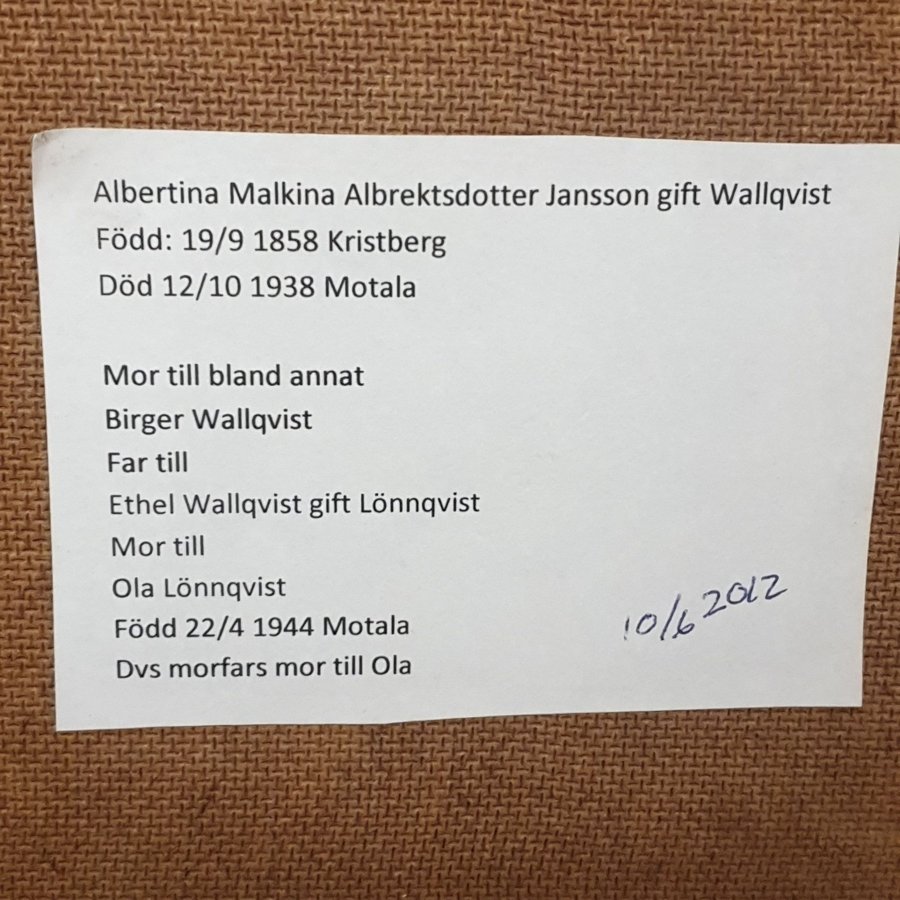 Albertina Malkina Albrektsdotter Jansson gift Wallqvist
Född: 19/9 1858 Kristberg
Död 12/10 1938 Motala
Mor till bland annat
Birger Wallqvist
Far till
Ethel Wallqvist gift Lönnqvist
Mor till
Ola Lönnqvist
Född 22/4 1944 Motala
Dvs morfars mor till Ola
10/6 2012